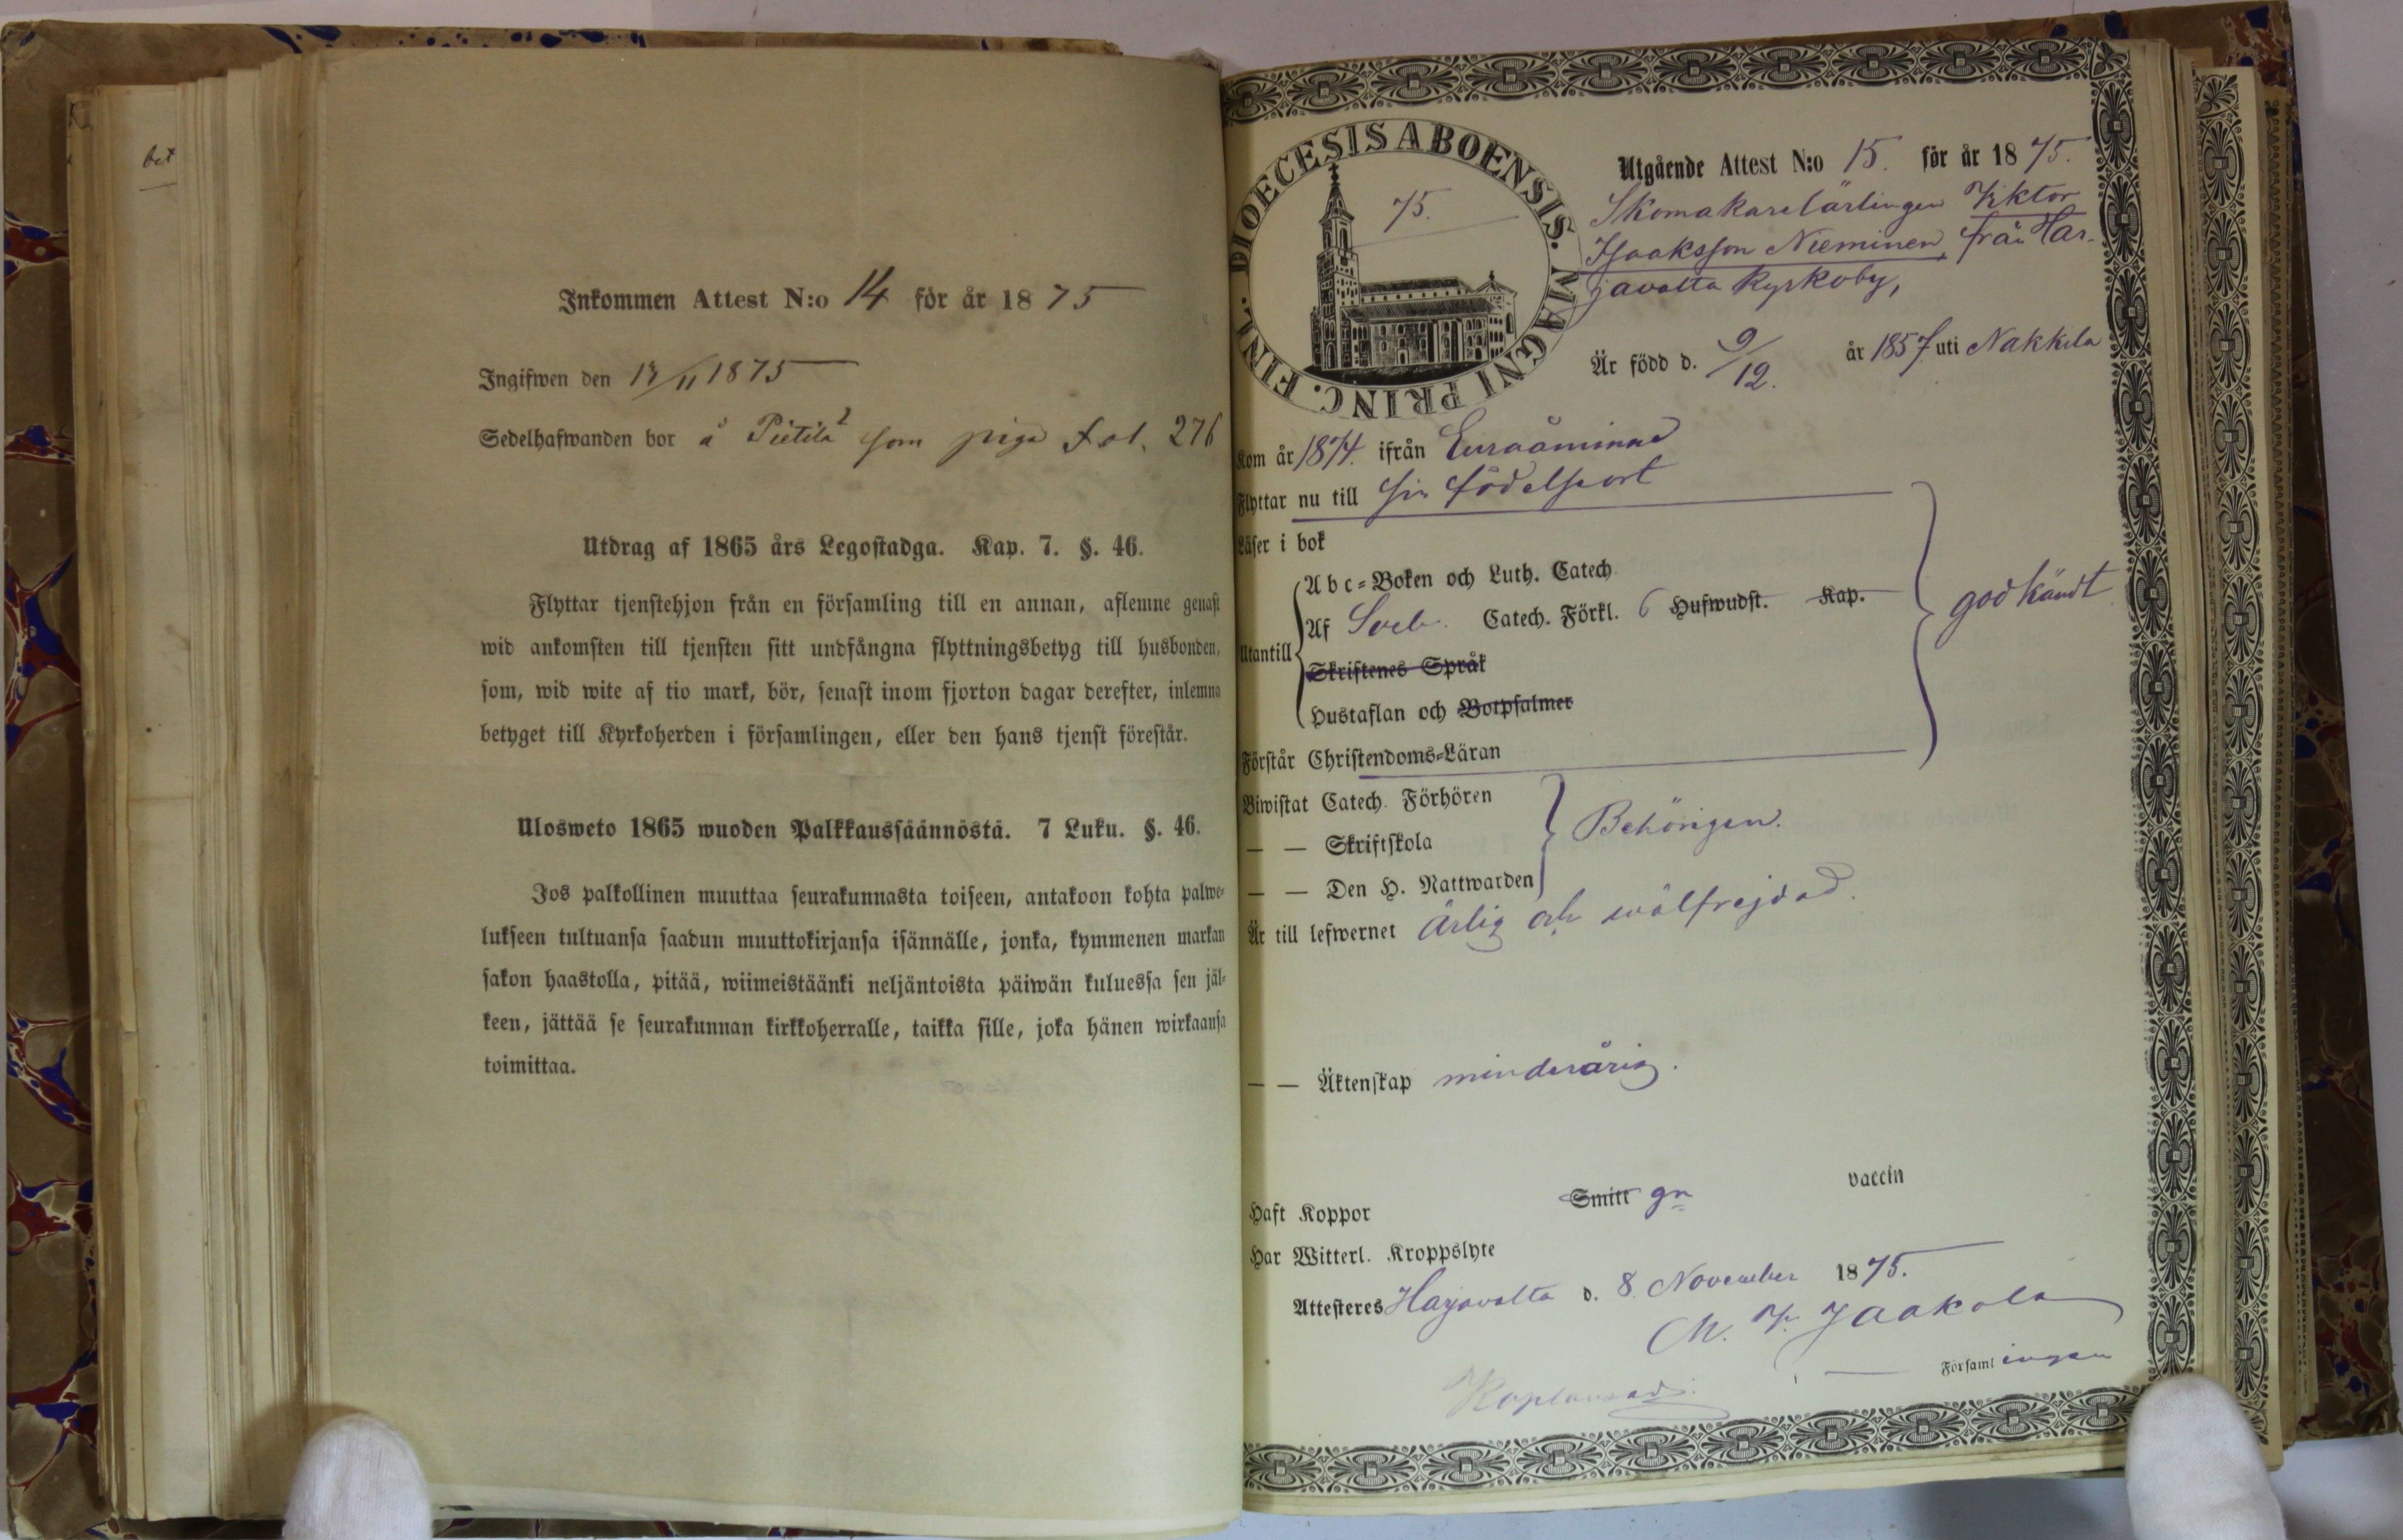 bet
Inkommen Attest N:o 14 för år 1875
Ingifwen den 13/11 1875
Sedelhafwanden bor å Pietilä som piga fol. 276
Utdrag af 1865 års Legostadga. Kap. 7. §. 46.
Flyttar tjenstehjon från en församling till en annan, aflemne genast
wid ankomsten till tjensten sitt undfångna flyttningsbetyg till husbonden,
som, wid wite af tio mark, bör, senast inom fjorton dagar derefter, inlemna
betyget till Kyrkoherden i församlingen, eller den hans tjenst förestår.
Ulosweto 1865 wuoden Palkkaussäännöstä. 7 Luku. §. 46.
Jos palkollinen muuttaa seurakunnasta toiseen, antakoon kohta palwe-
lukseen tultuansa saadun muuttokirjansa isännälle, jonka, kymmenen markan
sakon haastolla, pitää, wiimeistäänki neljäntoista päiwän kuluessa sen jäl-
keen, jättää se seurakunnan kirkkoherralle, taikka sille, joka hänen wirkaansa
toimittaa.
DIOECESIS ABOENSIS. MAGNI PRINC. FINL.
75.
Utgående Attest N:o 15. för år 1875.
Skomakarelärlingen Viktor
Isaaksson Nieminen, från Har-
javalta kyrkoby,
Är född d. 9/12. år 1857 uti Nakkila
Kom år 1874. ifrån Euraåminne
Flyttar nu till sin födelseort
Läser i bok
Abc-Boken och Luth. Catech.
Af Sveb. Catech. Förkl. 6 Hufwudst. Kap.
godkändt
Utantill
Skriftenes Språk
Hustaflan och Botpsalmer
Förstår Christendoms-Läran
Biwistat Catech. Förhören
— — Skriftskola
Behörigen.
— — Den H. Nattwarden
Är till lefwernet ärlig och wälfrejdad.
— — Äktenskap minderårig.
Haft Koppor Smitt gn vaccin
Har Witterl. Kroppslyte
Attesteres Harjavalta d. 8. November 1875.
M. V. Jaakola
Kaplansadj. Församlingen